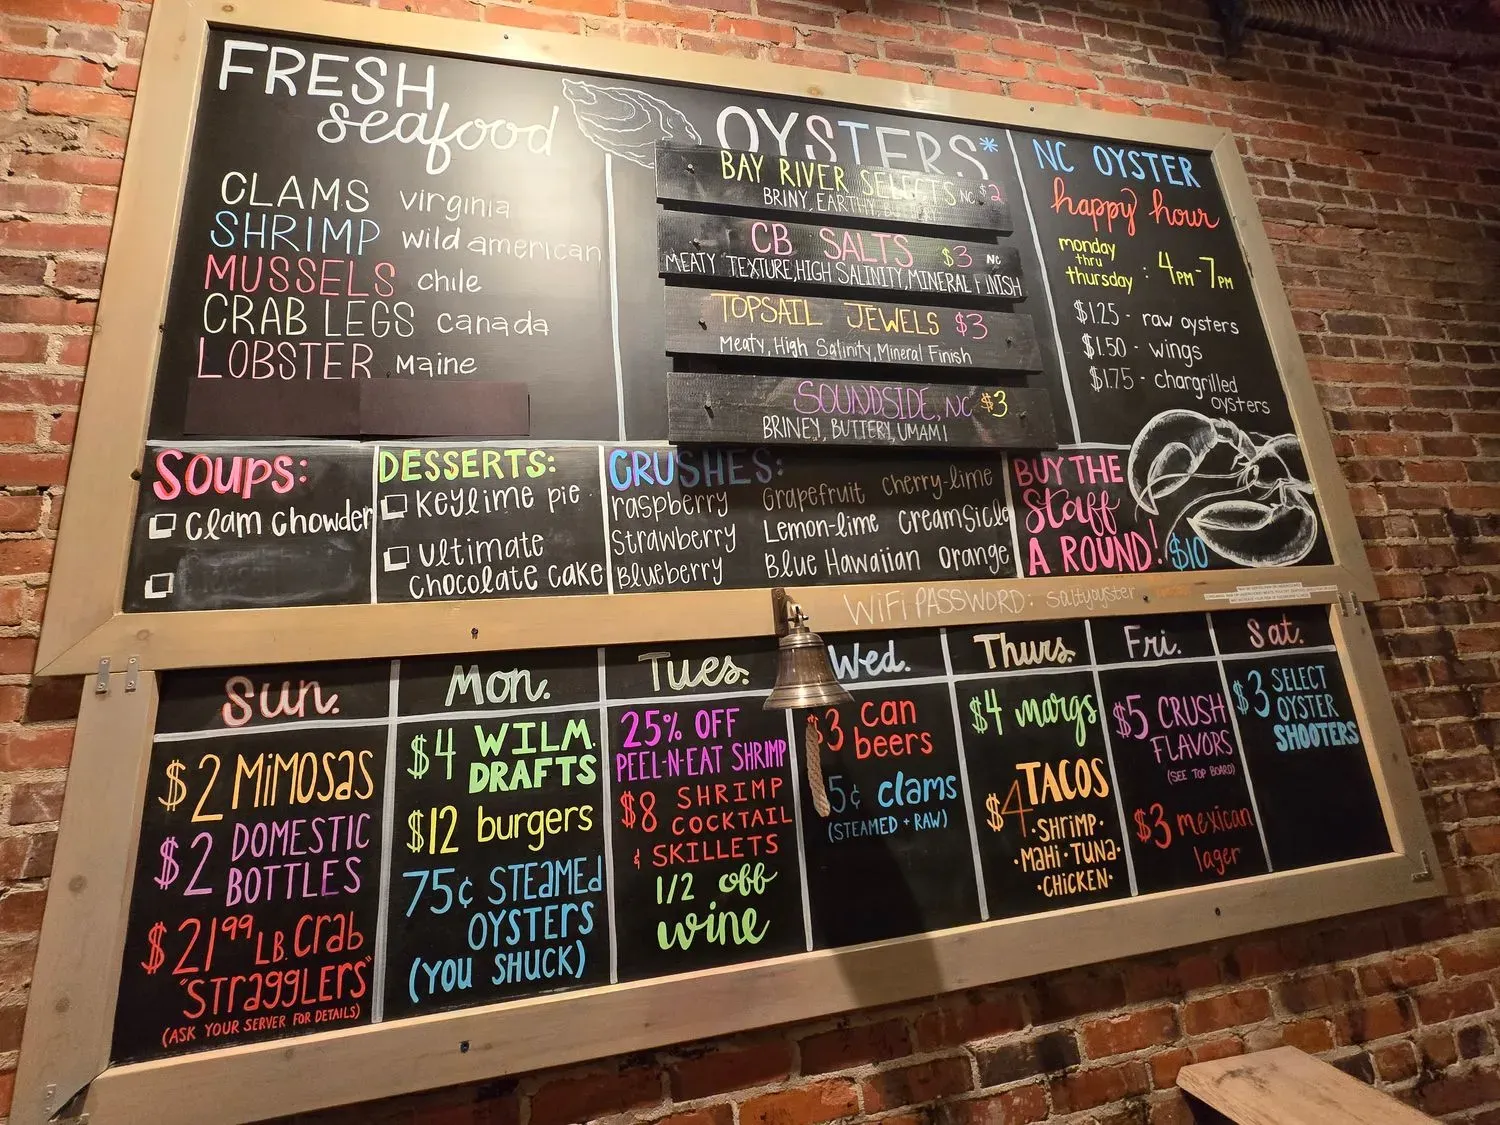 FRESH
seafood
CLAMS virginia
SHRIMP wild american
MUSSELS chile
CRAB LEGS canada
LOBSTER Maine
OYSTERS*
BAY RIVER SELECTS NC $2
BRINY, EARTHY,
CB SALTS $3 NC
MEATY TEXTURE, HIGH SALINITY, MINERAL FINISH
TOPSAIL JEWELS $3
Meaty, High Salinity, Mineral Finish
SOUNDSIDE, NC $3
BRINEY, BUTTERY, UMAMI
NC OYSTER
happy hour
monday
thru
thursday : 4PM-7PM
$1.25 - raw oysters
$1.50 - wings
$1.75 - chargrilled
oysters
SOUPS:
clam chowder
DESSERTS:
Keylime pie
ultimate
chocolate cake
CRUSHES:
raspberry Grapefruit cherry-lime
Strawberry Lemon-lime creamsicle
Blueberry Blue Hawaiian orange
BUY THE
Staff
A ROUND! $10
WiFi PASSWORD: saltyoyster
Sun.
$2 MiMOSas
$2 DOMESTIC
BOTTLES
$21.99 LB. Crab
"STragglers"
(ASK YOUR SERVER FOR DETAILS)
Mon.
$4 WILM.
DRAFTS
$12 burgers
75¢ STEaMEd
OYSTERS
(YOU SHUCK)
Tues.
25% OFF
PEEL-N-EAT SHRIMP
$8 SHRIMP
COCKTAIL
& SKILLETS
1/2 off
wine
Wed.
$3 can
beers
5¢ clams
(STEAMED + RAW)
Thurs.
$4 margs
$4 TACOS
·SHRIMP·
·MaHi·TUNa·
·CHICKEN·
Fri.
$5 CRUSH
FLAVORS
(SEE TOP BOARD)
$3 mexican
lager
Sat.
$3 SELECT
OYSTER
SHOOTERS